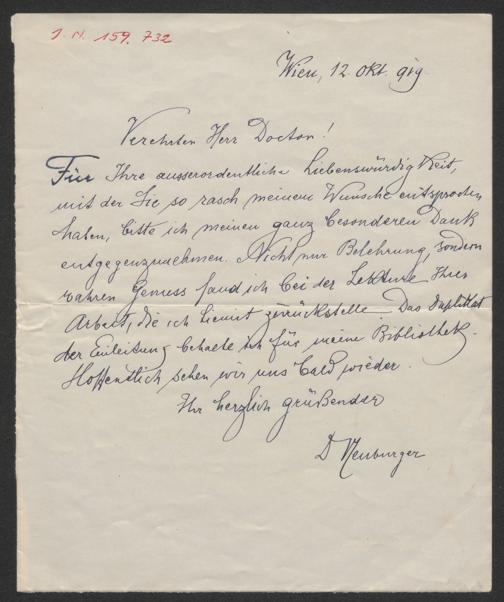 J. N. 159.732
Wien, 12. Okt. 919
Verehrter Herr Doctor!
Für Ihre ausserordentliche Liebenswürdigkeit,
mit der Sie so rasch meinem Wunsche entsprochen
haben, bitte ich meinen ganz besonderen Dank
entgegenzunehmen. Nicht nur Belehrung, sondern
wahren Genuss fand ich bei der Lektüre Ihrer
Arbeit, die ich hiemit zurückstelle. Das Duplikat
der Einleitung behalte ich für meine Bibliothek.
Hoffentlich sehen wir uns bald wieder.
Ihr herzlich grüßender
D Neuburger